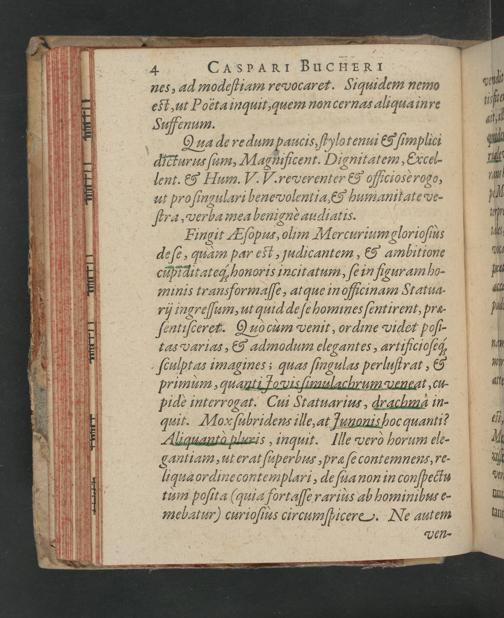 4 CASPARI BUCHERI
nes, ad modeſtiam revocaret. Siquidem nemo
eſt, ut Poëta inquit, quem non cernas aliqua in re
Suffenum.
Qua de re dum paucis, ſtylo tenui & ſimplici
dicturus ſum, Magnificent. Dignitatem, Excel-
lent. & Hum. V. V. reverenter & officiosè rogo,
ut pro ſingulari benevolentia, & humanitate ve-
ſtra, verba mea benignè audiatis.
Fingit Æſopus, olim Mercurium glorioſiùs
de ſe, quàm par eſt, judicantem, & ambitione
cupiditateq́; honoris incitatum, ſe in figuram ho-
minis transformaſſe, atque in officinam Statua-
rij ingreſſum, ut quid de ſe homines ſentirent, præ-
ſentiſceret. Quò cùm venit, ordine videt poſi-
tas varias, & admodum elegantes, artificioſeq́;
ſculptas imagines; quas ſingulas perluſtrat, &
primùm, quanti Jovis ſimulachrum veneat, cu-
pidè interrogat. Cui Statuarius, drachmâ in-
quit. Mox ſubridens ille, at Junonis hoc quanti?
Aliquantò pluris, inquit. Ille verò horum ele-
gantiam, ut erat ſuperbus, præ ſe contemnens, re-
liqua ordine contemplari, de ſua non in conſpectu
tum poſita (quia fortaſſe rariùs ab hominibus e-
mebatur) curioſiùs circumſpicere. Ne autem
ven-